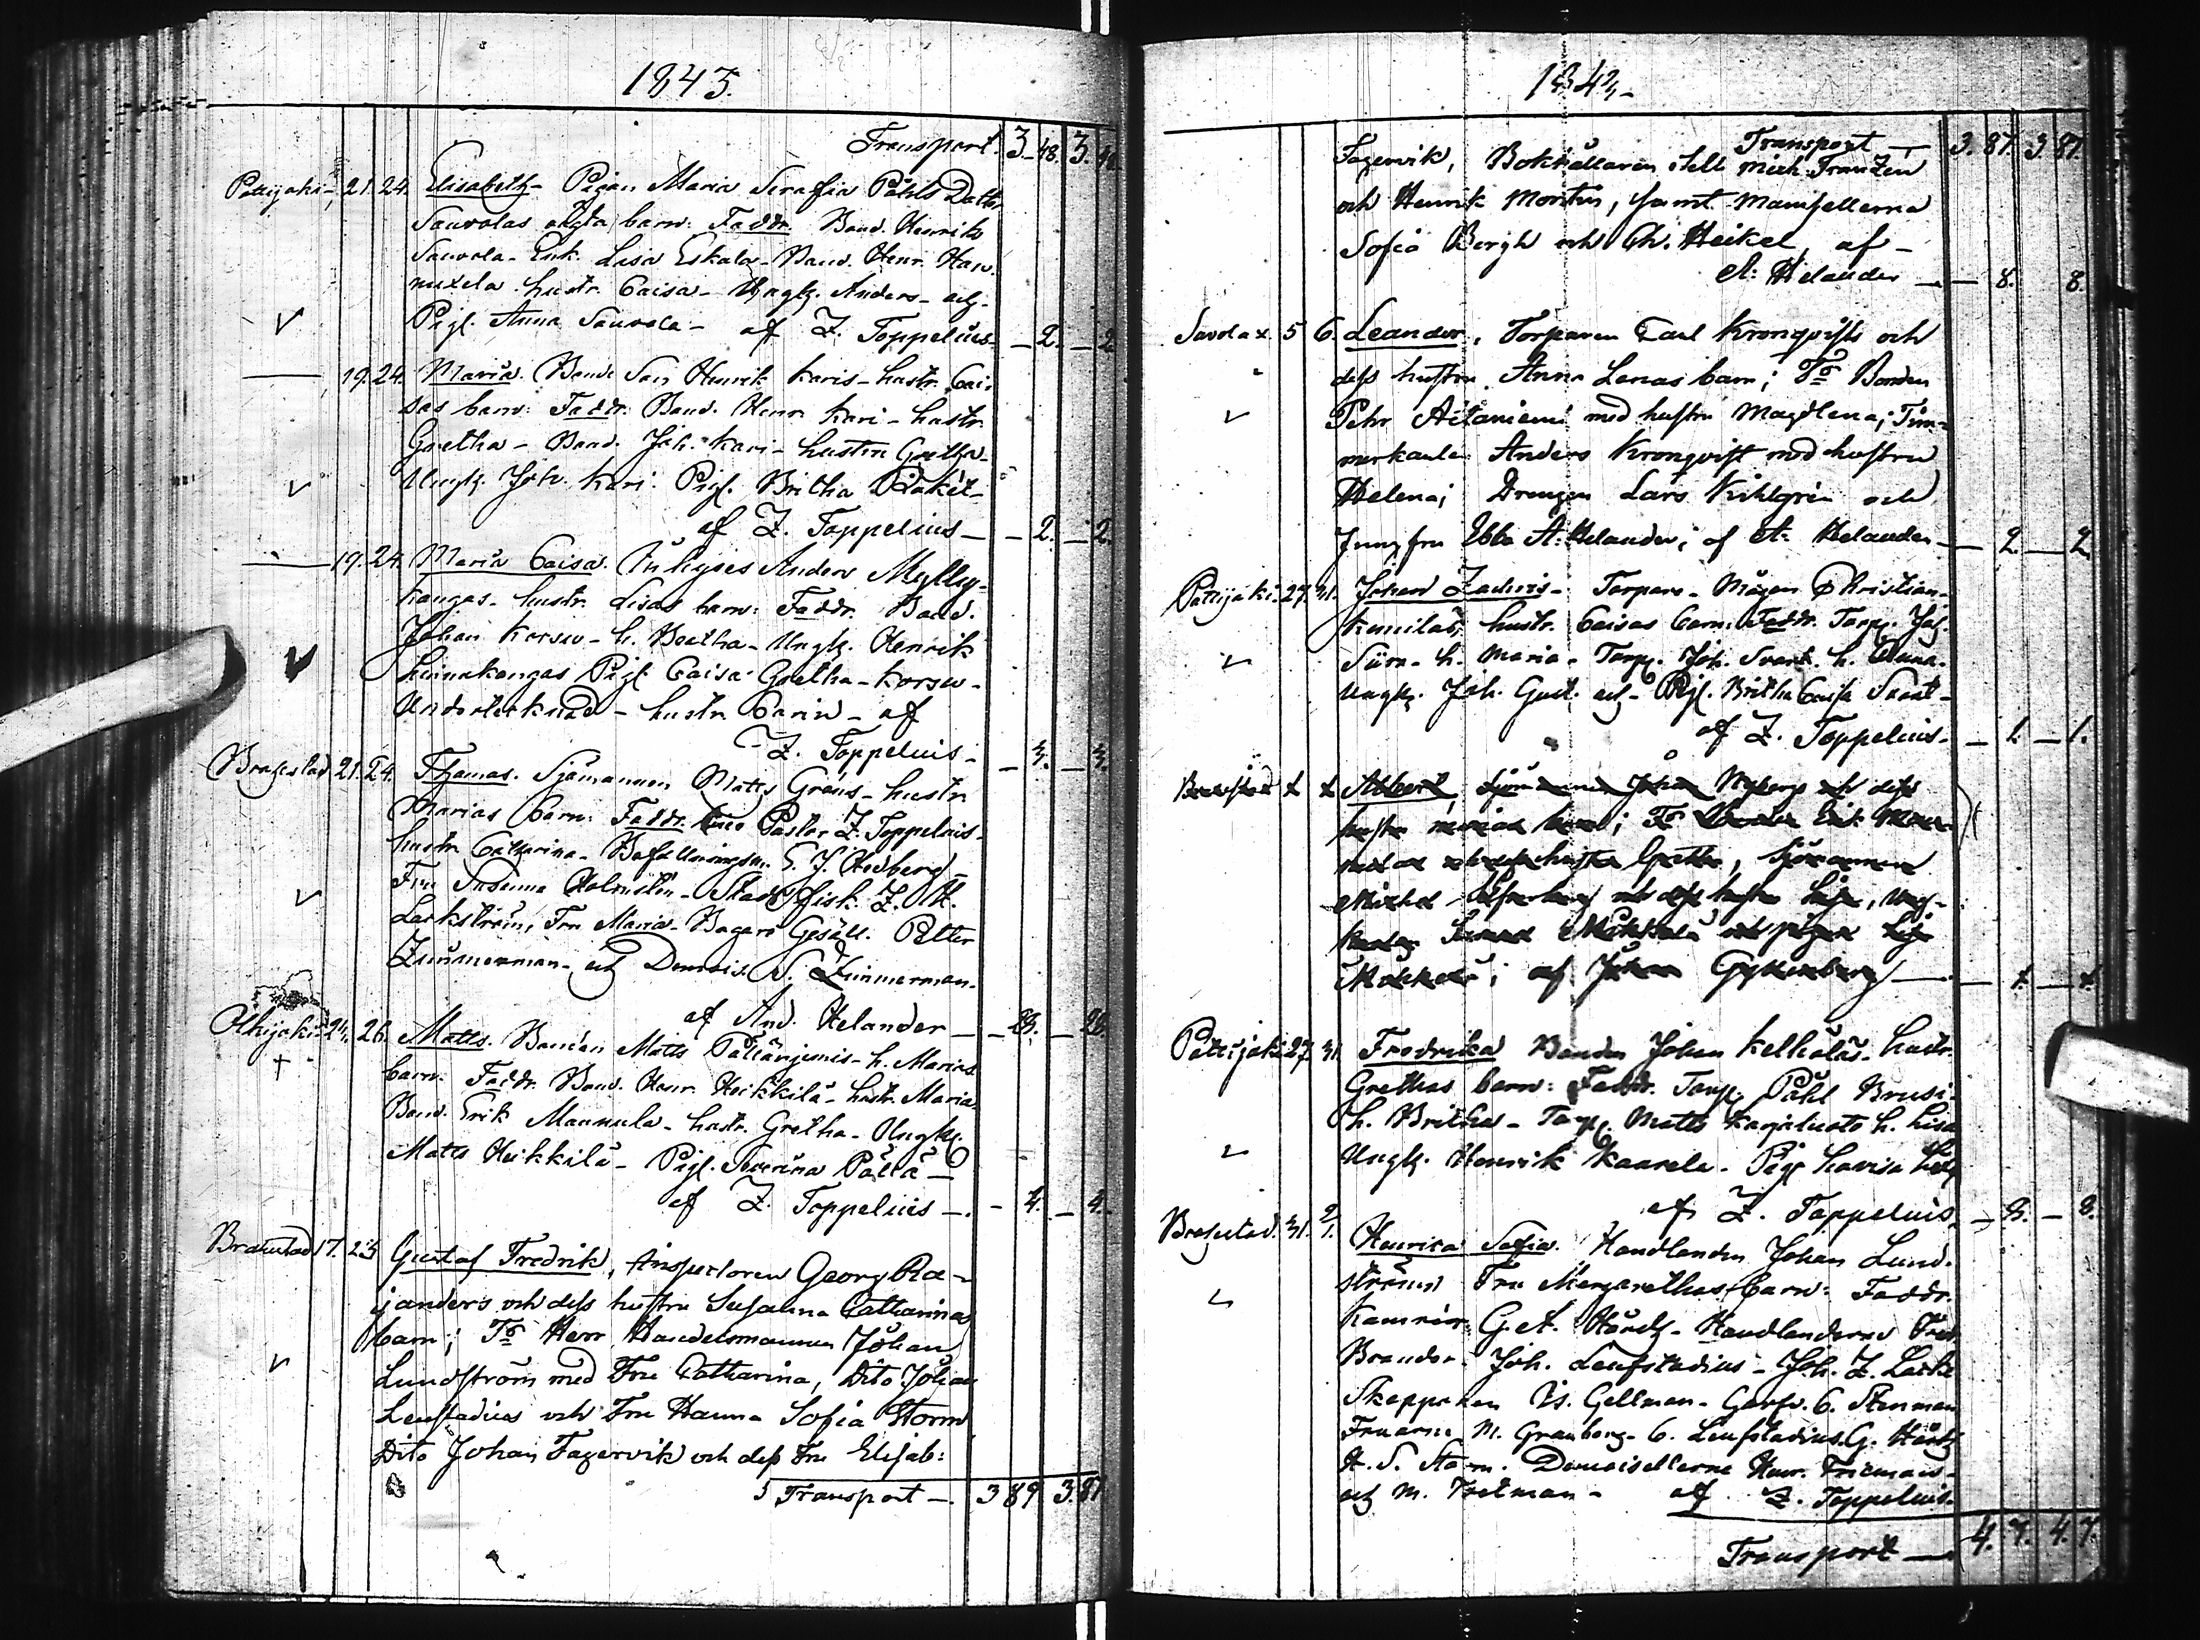 1843.
Transport. 3 48. 3. 48
Pattijoki 21. 24. Elisabeth - Pigan Maria Serafia Påhls Dotter
Sauvolas oägta barn: Faddr. Bond. Henrik
Sauvola - Enk. Lisa Eskola - Bond. Henr. Han-
nuxela hustr. Caisa - Ungk. Anders - och
Pig. Anna Sauvola - af Z. Toppelius - 2. - 2
19. 24. Maria. Bonde Son Henrik Karis - hustr. Cai-
sas barn: Faddr. Bond. Henr. Kari - hustr.
Gretha - Bond. Joh. Kari - hustru Gretha -
Ungk. Joh. Kari. Pig. Britha
af Z. Toppelius - - 2. - 2.
19. 24. Maria Caisa. Anders Mylly-
kangas - hustr. Lisas barn: Faddr. Bond.
Johan Korsu - h. Beatha - Ungk. Henrik
Linnakangas Pig. Caisa Gretha - Korsu -
Undertecknad - hustr. Carin - af
Z. Toppelius - - 3. - 3.
Brahestad 21. 24. Thomas. Sjömannen Matts Gröns - hustr.
Marias barn: Faddr. Pastor Z. Toppelius -
hustr. Catharina - Befallningsm. E. J. Hedberg -
Fru Susanna Holmstén - Stads fisk. Z. M.
Lackström, Fru Maria - Bagare Gesäll. Petter
Zimmerman - och Demois. S. Zimmerman.
af And. Helander - 28. - 28.
Olkijoki 24. 26. Matts. Bonden Matts h. Marias
barn: Faddr. Bond. Henr. Heikkilä - hustr. Maria.
Bond. Erik Mannula - hustr. Gretha - Ungk.
Matts Heikkilä - Pig. Severina Pällä -
af Z. Toppelius - - 4. - 4.
Brahestad 17. 23 Gustaf Fredrik, Inspectoren Georg Re-
janders och dess hustru Susanna Catharinas
barn; Fr. Herr Handelsmannen Johan
Lundström med Fru Catharina, Dito Johan
Leufstadius och Fru Hanna Sofia Storm
Dito Johan Fagervik och dess Fru Elisab:
Transport - 3 89 3. 87
1843 -
Transport - 3. 87. 3 87.
Fagervik, Bokhållaren Mich. Franzén
och Henrik Montin, samt Mamsellerna
Sofia Bergh och Ch. Heikel, af -
A: Helander - 8. 8.
Savolax. 5 6. Leander, Torparen Carl Kronqvists och
dess hustru Anna Lenas barn; Fr. Bonden
Pehr Aitaniemi med hustru Magdlena; Tim-
merkarlen Anders Kronqvist med hustru
Helena; Drengen Lars Kihlgrén och
Jungfru Ebba A. Helander; af A: Helander - 2. - 2
Pattijoki. 27. 31. Johan Zachris - Torpare - Mågen Christian
hustr. Caisas barn. Faddr. Torp. Joh.
h. Maria - Torp. Joh. Svart. h. Anna.
Ungk. Joh. Gust. och Pig. Britha Caisa Svart -
af Z. Toppelius - - 1. - 1.
Brahestad Albert, Sjömannen Johan Nybergs och dess
hustru Marias barn; Fr. Erik
och dess hustru Gretha, Sjömannen
Michel och dess hustru Lisa, Ung-
karlen och pigan Lisa
af Johan Gyllenberg
Pattijoki 27. 31. Fredrika Bonden Johan Kelholäs - hustr.
Grethas barn: Faddr. Torp. Påhl Brusi -
h. Britha - Torp. Matts Karjaluoto h. Lisa
Ungk. Henrik Kaarela - Pig. Lovisa
af Z. Toppelius - 3. - 3.
Brahestad. 31. 2/1. Henrica Sofia. Handlanden Johan Lund-
ströms Fru Margarethas barn: Faddr.
Kamrer G. A. Hårdh - Handlanderne Fred.
Brander - Joh. Leufstadius - Joh. Z. Lack
Skepparen Is. Gellman - Garfv. C. Stenman
Fruarne M. Granberg - C. Leufstadius G. Hårdh
H. S. Storm. Demoisellerne Henr. Frieman -
och M. Fretman - af Z. Toppelius.
Transport - 4. 7. 4. 7.